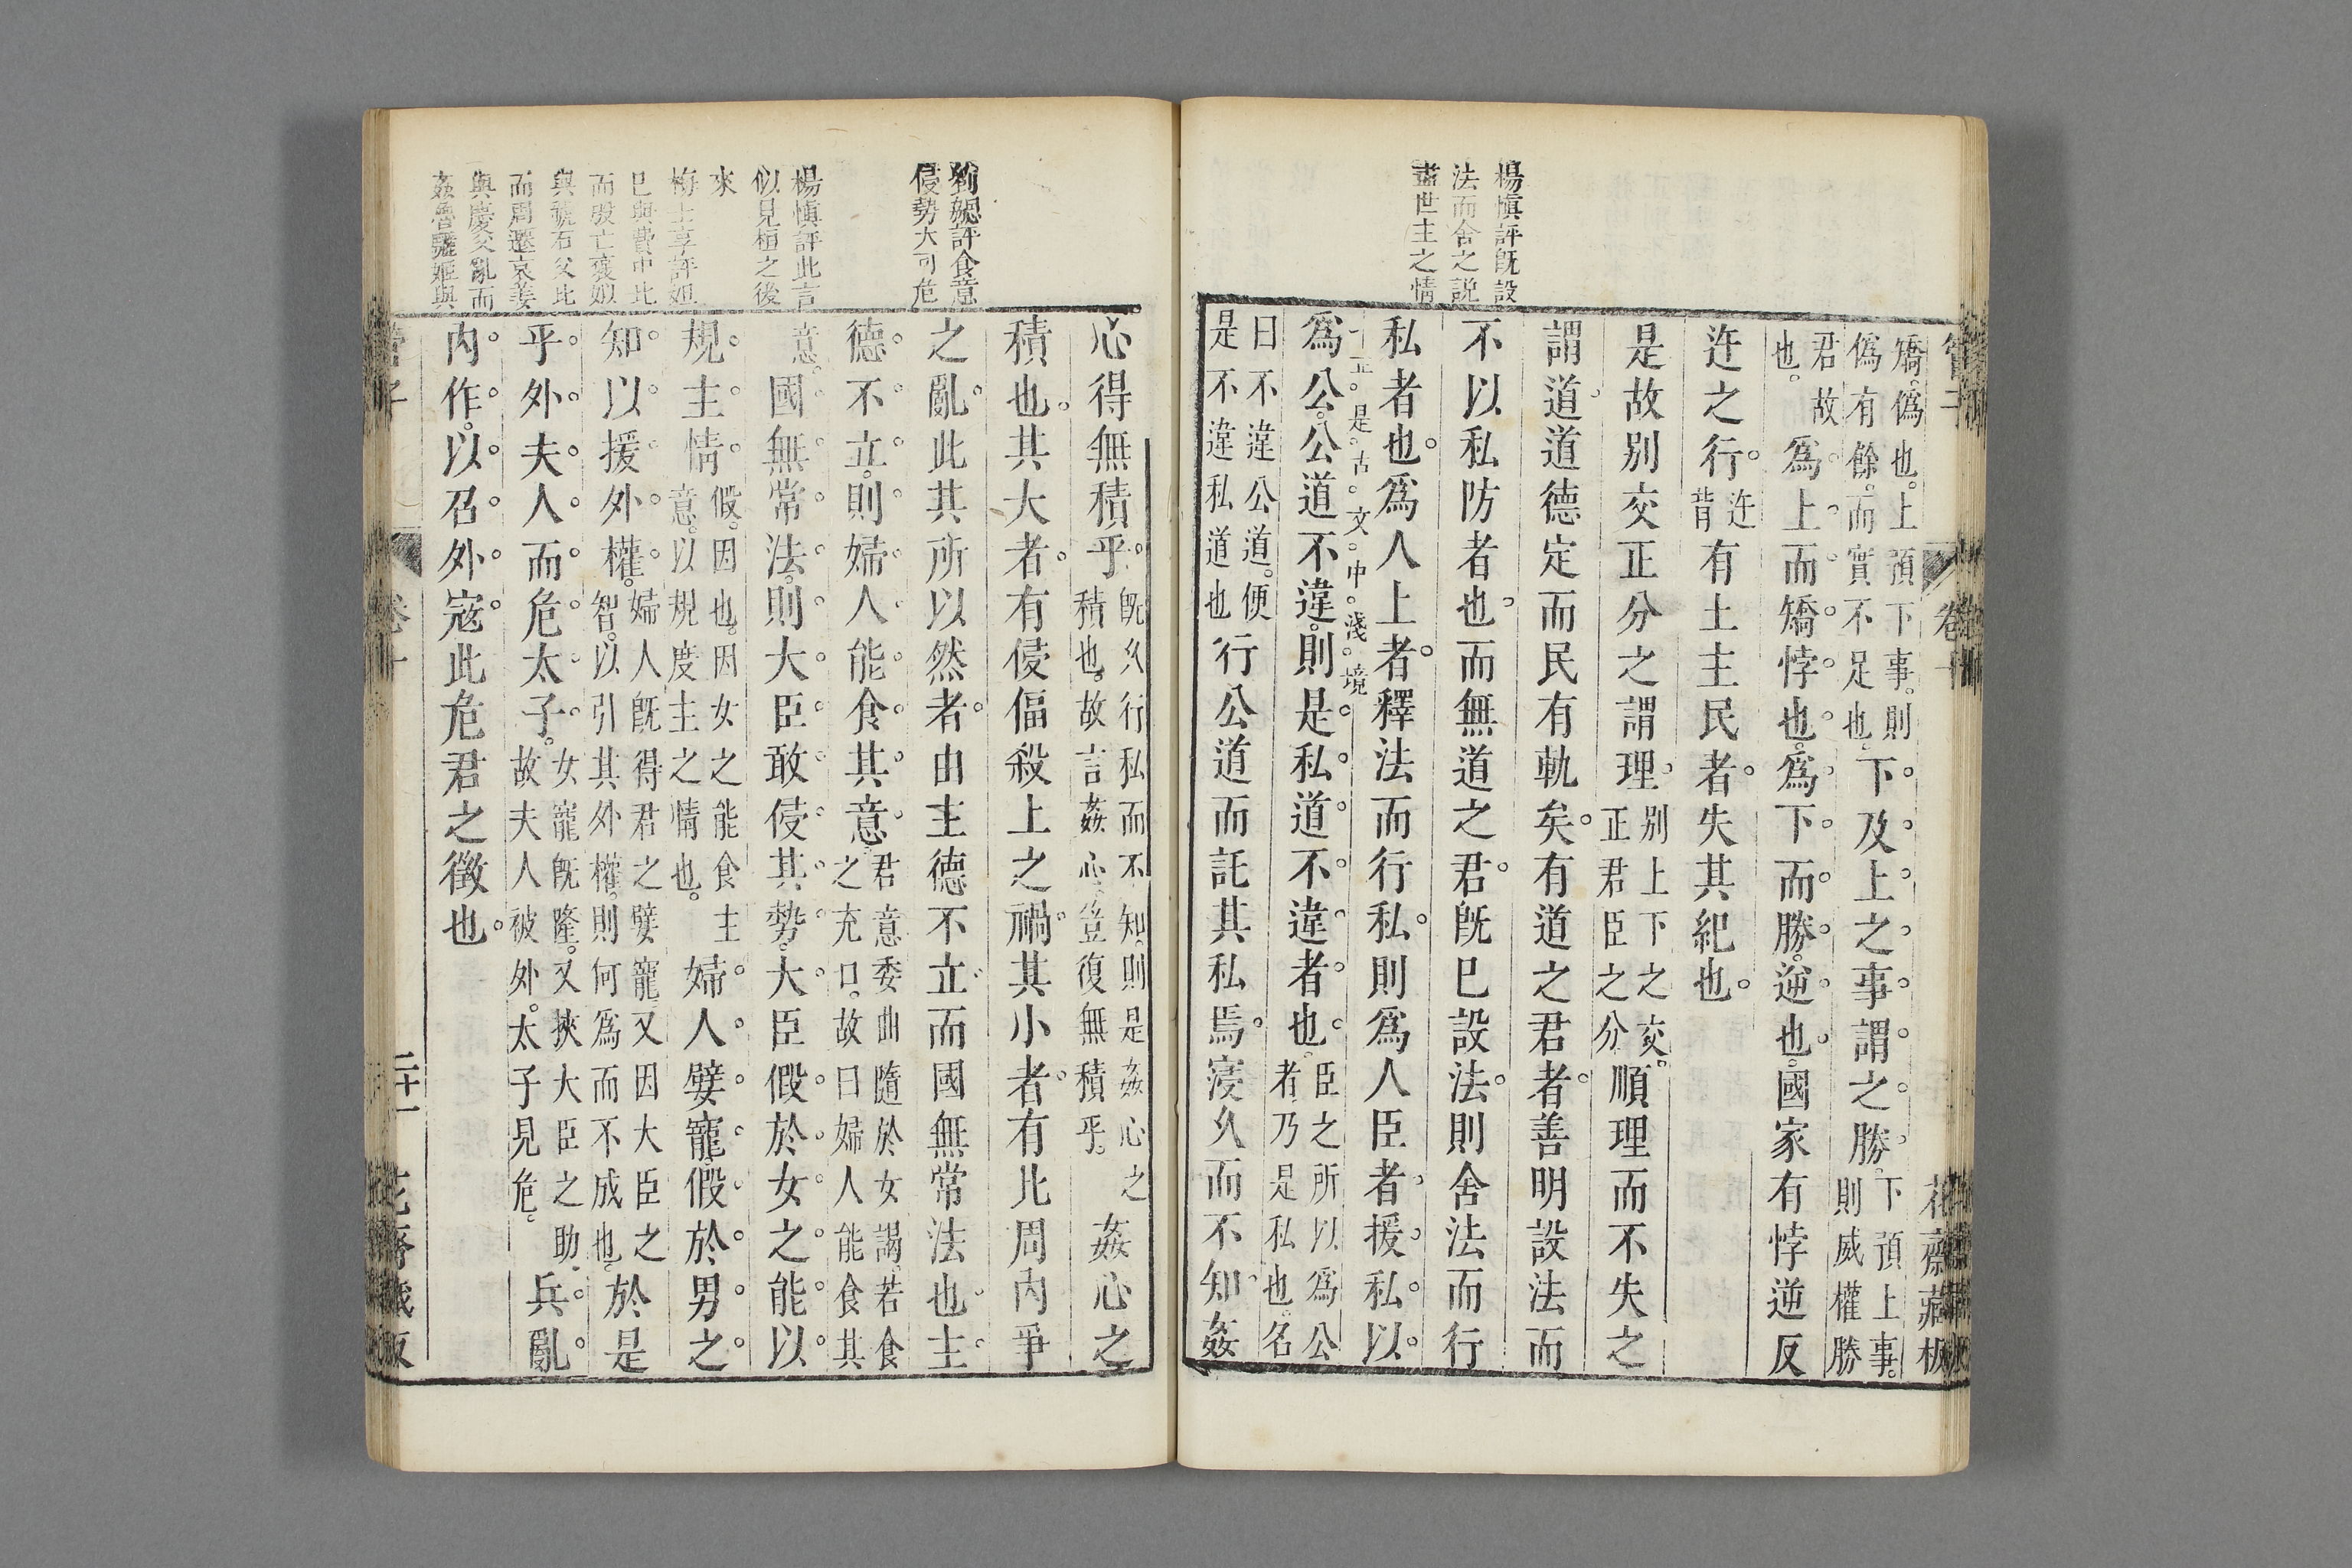 楊慎評旣設
法而舍之説
盡世主之情
矯僞也上預下事則
僞有餘而實不足也下及上之事謂之勝下預上事
則威權勝
君故
也爲上而矯悖也爲下而勝逆也國家有悖逆反
迕之行迕
背有土主民者失其紀也
是故别交正分之謂理别上下之交
正君臣之分順理而不失之
謂道道德定而民有軌矣有道之君者善明設法而
不以私防者也而無道之君旣已設法則舍法而行
私者也爲人上者釋法而行私則爲人臣者援私以
一正是古文中淺境
爲公公道不違則是私道不違者也臣之所以爲公
者乃是私也名
曰不違公道便
是不違私道也行公道而託其私焉寖久而不知姦
劉勰評食意
侵勢大可危
楊慎評此言
似見桓之後
來
梅士享評妲
已與費中比
而殷亡襃姒
與虢石父比
而周遷哀姜
與慶父亂而
姦魯驪姬與
心得無積乎旣久行私而不知則是姦心之
積也故言姦心豈復無積乎姦心之
積也其大者有侵偪殺上之禍其小者有比周内爭
之亂此其所以然者由主德不立而國無常法也主
德不立則婦人能食其意君意委曲隨於女謁若食
之充口故曰婦人能食其
意國無常法則大臣敢侵其勢大臣假於女之能以
規主情假因也因女之能食主
意以規度主之情也婦人嬖寵假於男之
知以援外權婦人旣得君之嬖寵又因大臣之
智以引其外權則何爲而不成也於是
乎外夫人而危太子女寵旣隆又挾大臣之助
故夫人被外太子見危兵亂
内作以召外寇此危君之徵也
管子
卷十
二十一
花齋藏板